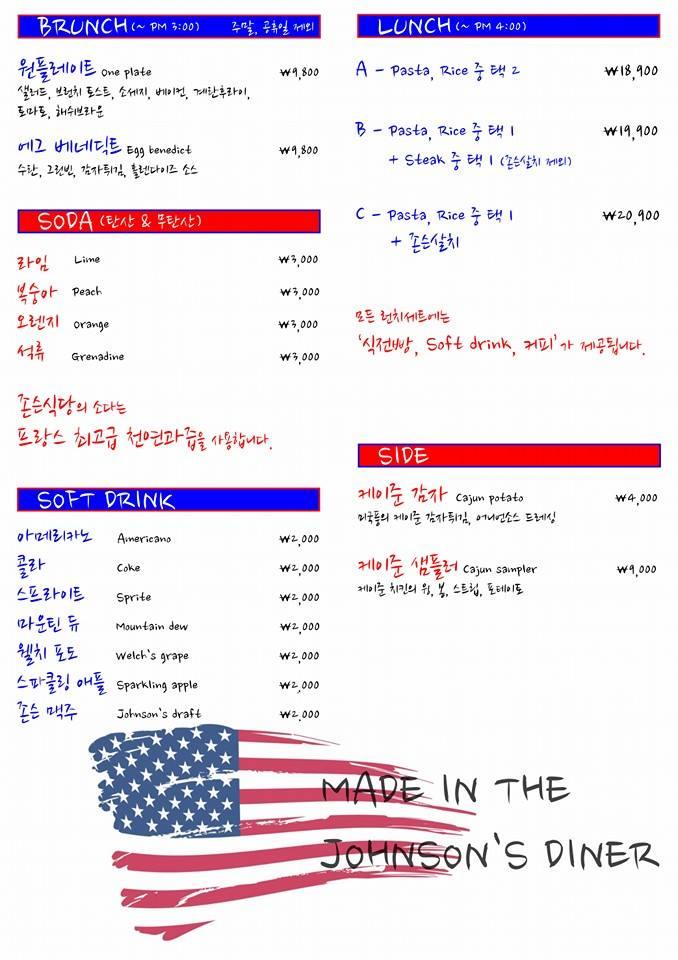 BRUNCH (~ PM 3:00) 주말, 공휴일 제외
원플레이트 One plate ₩9,800
샐러드, 브런치 토스트, 소세지, 베이컨, 계란후라이,
토마토, 해쉬브라운
에그 베네딕트 Egg benedict ₩9,800
수란, 그린빈, 감자튀김, 홀랜다이즈 소스
SODA (탄산 & 무탄산)
라임 Lime ₩3,000
복숭아 Peach ₩3,000
오렌지 Orange ₩3,000
석류 Grenadine ₩3,000
존슨식당의 소다는
프랑스 최고급 천연과즙을 사용합니다.
SOFT DRINK
아메리카노 Americano ₩2,000
콜라 Coke ₩2,000
스프라이트 Sprite ₩2,000
마운틴 듀 Mountain dew ₩2,000
웰치 포도 Welch's grape ₩2,000
스파클링 애플 Sparkling apple ₩2,000
존슨 맥주 Johnson's draft ₩2,000
LUNCH (~ PM 4:00)
A - Pasta, Rice 중 택 2 ₩18,900
B - Pasta, Rice 중 택 1 ₩19,900
+ Steak 중 택 1 (존슨살치 제외)
C - Pasta, Rice 중 택 1 ₩20,900
+ 존슨살치
모든 런치세트에는
'식전빵, Soft drink, 커피'가 제공됩니다.
SIDE
케이준 감자 Cajun potato ₩4,000
미국풍의 케이준 감자튀김, 어니언소스 드레싱
케이준 샘플러 Cajun sampler ₩9,000
케이준 치킨의 윙, 봉, 스트립, 포테이토
MADE IN THE
JOHNSON'S DINER